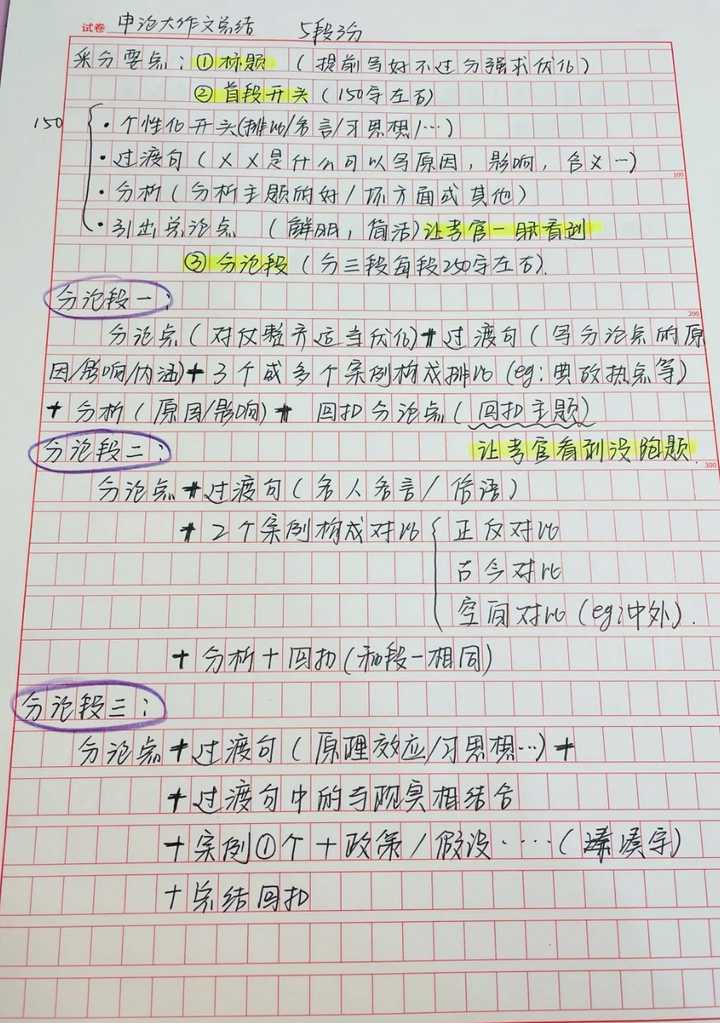 试卷 申论大作文总结 5段3分
采分要点：①标题（提前写好不过分强求优化）
②首段开头（150字左右）
150
·个性化开头(排比/名言/习思想/…)
·过渡句（××是什么可以写原因，影响，含义…）
·分析（分析主题的好/坏方面或其他）
·引出总论点（鲜明，简洁）让考官一眼看到
100
③分论段（分三段每段250字左右）.
分论段一：
200
分论点（对仗整齐适当优化）+过渡句（写分论点的原
因/影响/内涵）+3个或多个案例构成排比（eg：典故热点等）
+分析（原因/影响）+回扣分论点（回扣主题）
分论段二： 让考官看到没跑题.
300
分论点+过渡句（名人名言/俗语）
+2个案例构成对比 正反对比
古今对比
空间对比（eg：中外）.
+分析+回扣（和段一相同）
分论段三：
分论点+过渡句（原理效应/习思想…）+
+过渡句中的与现实相结合
+案例①个+政策/假设····（凑字）
+总结回扣